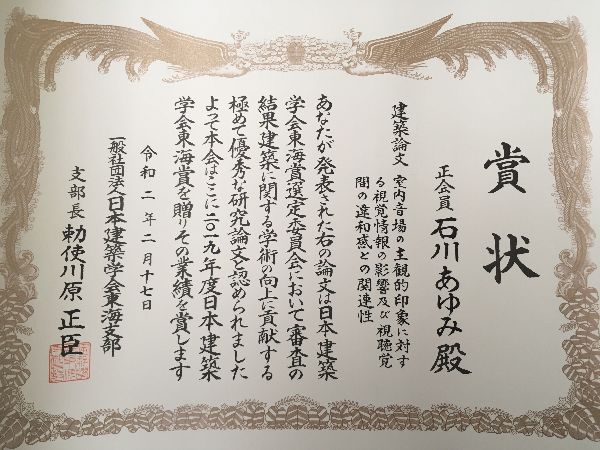 賞状
正会員 石川あゆみ殿
建築論文 室内音場の主観的印象に対す
る視覚情報の影響及び視聴覚
間の違和感との関連性
あなたが発表された右の論文は日本建築
学会東海賞選定委員会において審査の
結果建築に関する学術の向上に貢献する
極めて優秀な研究論文と認められました
よって本会はここに二〇一九年度日本建築
学会東海賞を贈りその業績を賞します
令和二年二月十七日
一般社団法人日本建築学会東海支部
支部長 勅使川原正臣